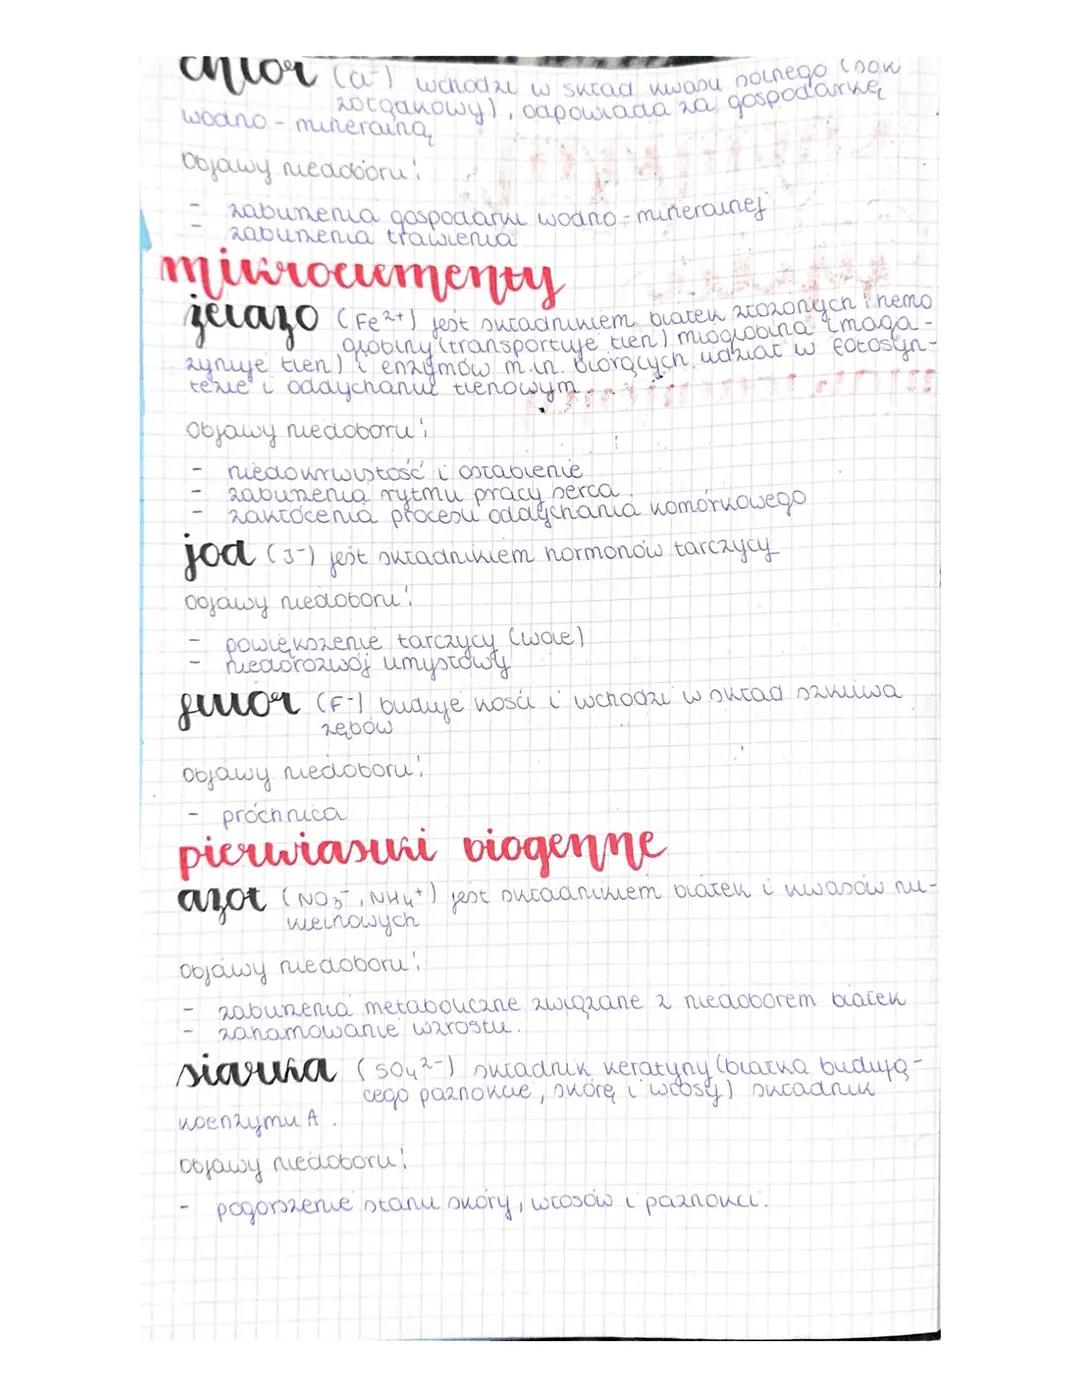 chlor (Cl-) wchodzi w skład kwasu solnego (sok
żołądkowy), odpowiada za gospodarkę
wodno-mineralną
objawy niedoboru:
- zaburzenia gospodarki wodno-mineralnej
- zaburzenia trawienia
mikroelementy
żelazo (Fe²⁺) jest składnikiem białek złożonych: hemo
globiny (transportuje tlen) mioglobina (maga-
zynuje tlen) i enzymów m.in. biorących udział w fotosyn-
tezie i oddychaniu tlenowym
objawy niedoboru:
- niedokrwistość i osłabienie
- zaburzenia rytmu pracy serca
- zakłócenia procesu oddychania komórkowego
jod (J-) jest składnikiem hormonów tarczycy
objawy niedoboru:
- powiększenie tarczycy (wole)
- niedorozwój umysłowy
fluor (F-) buduje kości i wchodzi w skład szkliwa
zębów
objawy niedoboru:
- próchnica
pierwiastki biogenne
azot (NO₃⁻, NH₄⁺) jest składnikiem białek i kwasów nu-
kleinowych
objawy niedoboru:
- zaburzenia metaboliczne związane z niedoborem białek
- zahamowanie wzrostu.
siarka (SO₄²⁻) składnik keratyny (białka budują-
cego paznokcie, skórę i włosy) składnik
koenzymu A.
objawy niedoboru:
- pogorszenie stanu skóry, włosów i paznokci.